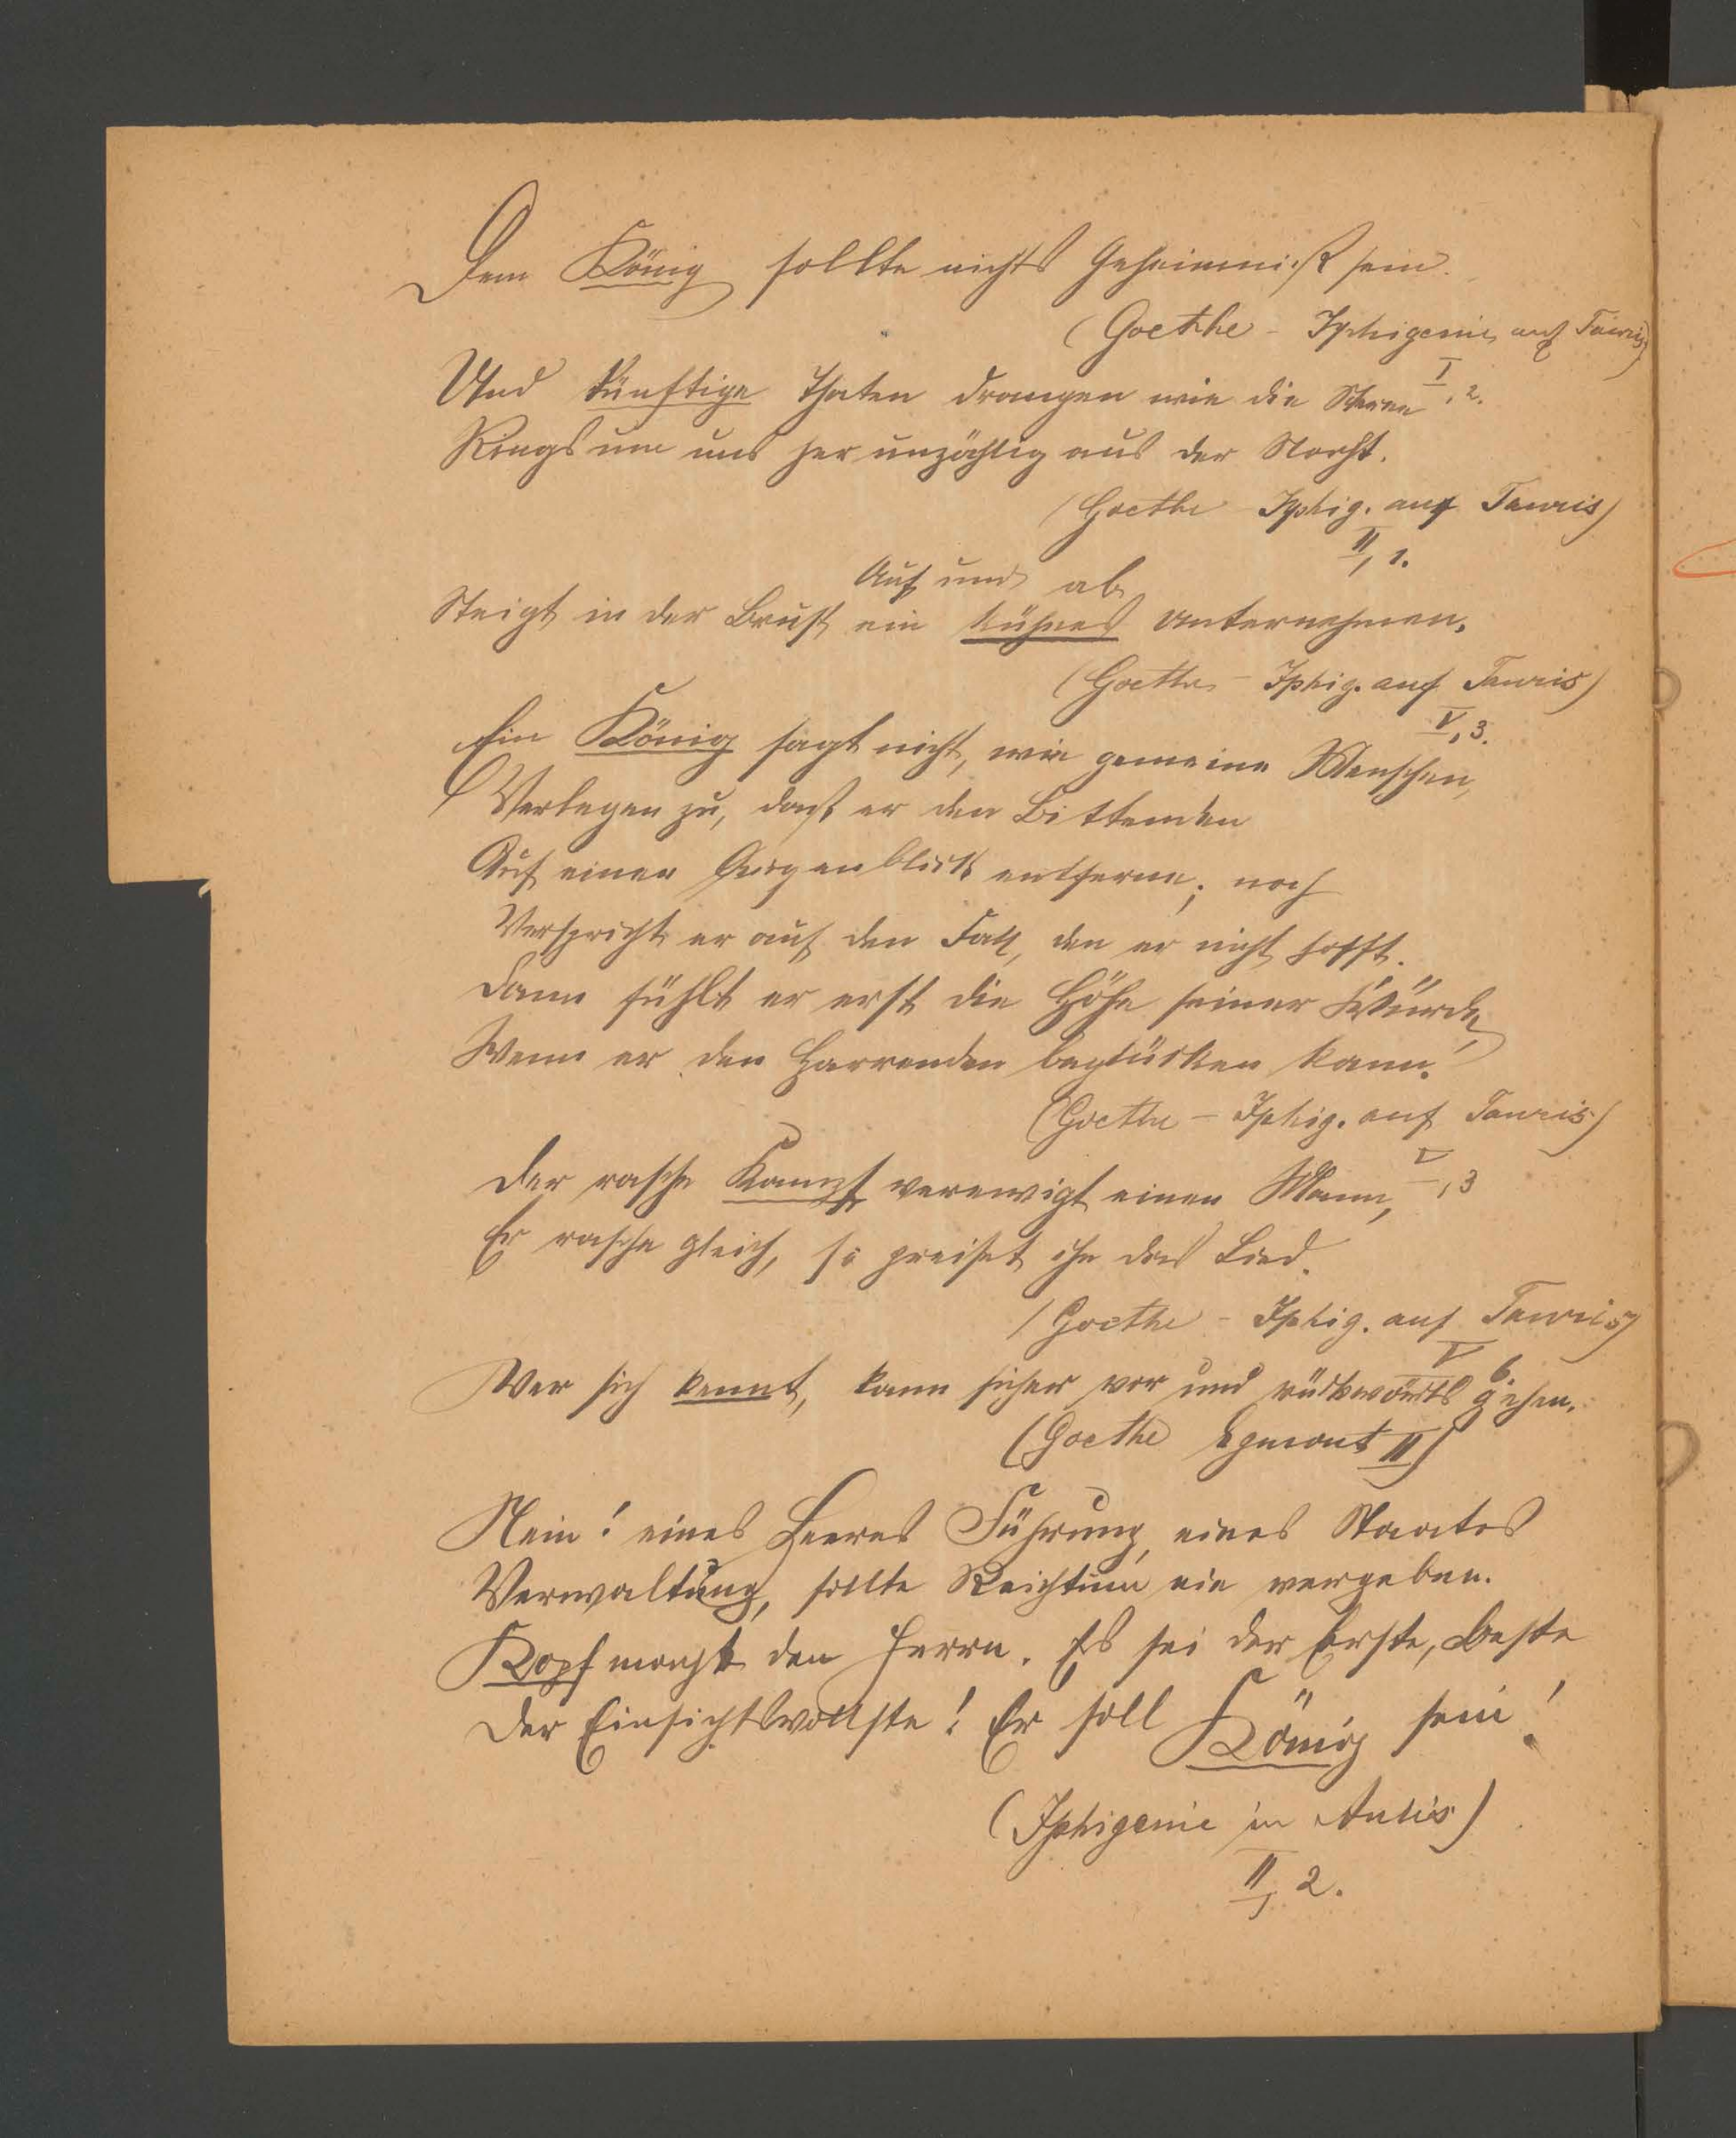 Dem König sollte nichts Geheimniß sein.
(Goethe - Iphigenie auf Tauris)
I, 2.
Und künftige Thaten drangen wie die Sterne
Rings um uns her unzählig aus der Nacht.
(Goethe Iphig. auf Tauris)
II, 1.
Auf und ab
Steigt in der Brust ein kühnes Unternehmen.
(Goethe - Iphig. auf Tauris)
V, 3.
Ein König sagt nicht, wie gemeine Menschen,
Verlegen zu, daß er den Bittenden
Auf einen Augenblick entferne; noch
Verspricht er auf den Fall, den er nicht hofft.
Dann fühlt er erst die Höhe seiner Würde,
Wenn er den Harrenden beglücken kann!
(Goethe - Iphig. auf Tauris)
V, 3
Der rasche Kampf verewigt einen Mann,
Er rasche gleich, so preiset ihn das Lied.
(Goethe - Iphig. auf Tauris)
V 6.
Wer sich kennt, kann sicher vor und rückwärts gehen.
(Goethe Egmont II)
Nein! eines Heeres Führung, eines Staates
Verwaltung, sollte Reichtum nie vergeben.
Kopf macht den Herrn. Es sei der Erste, Beste
Der Einsichtsvollste! Er soll König sein!
(Iphigenie in Aulis)
II, 2.